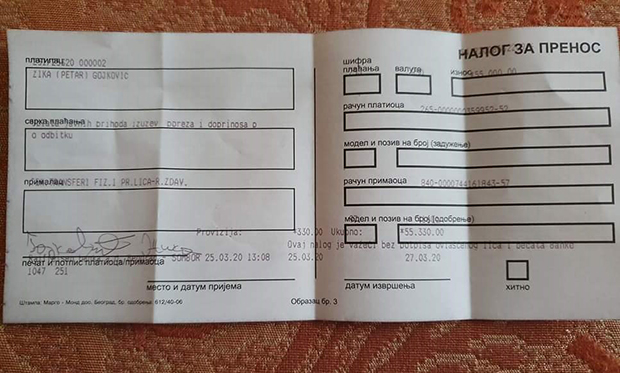 НАЛОГ ЗА ПРЕНОС
платилац
000002
ZIKA (PETAR) GOJKOVIC
сврха плаћања
prihoda izuzev poreza i doprinosa p
o odbitku
прималац
TRANSFERI FIZ.I PR.LICA-R.ZDAV.
шифра
плаћања
валута
износ
55.000,00
рачун платиоца
модел и позив на број (задужење)
рачун примаоца
840-0000744161843-57
модел и позив на број (одобрење)
Provizija: *330.00 Ukupno: *55.330.00
Ovaj nalog je vazeci bez potpisa ovlascenog lica i pecata banke
SOMBOR 25.03.20 13:08 25.03.20 27.03.20
печат и потпис платиоца/примаоца
1047 251
место и датум пријема
датум извршења
ХИТНО
Образац бр. 3
Штампа: Марго - Монд доо, Београд, бр. одобрења: 612/40-06